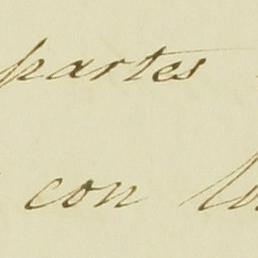 partes
con